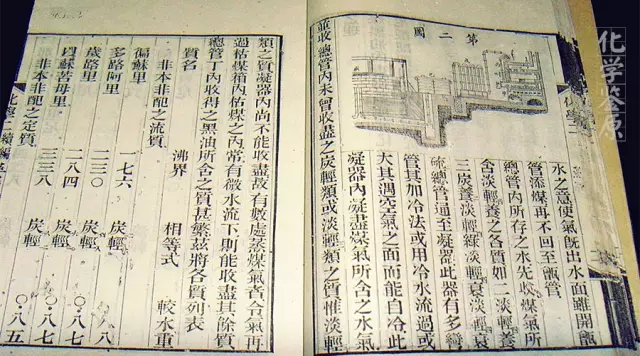 第二圖
水之意使氣旣出水面雖開甑
管添煤再不回至甑管
總管內所存之水先收煤氣所
含淡輕養之各質如二淡輕養
三炭養淡輕綠淡輕衰淡輕衰
硫總管通至凝器此器有多彎
管其加冷法或用冷水流過或
大其遇空氣之面而能自冷此
凝器內凝盡煤氣所含之水氣
並收總管內未曾收盡之炭輕類或淡輕類之質惟淡輕
類之質凝器內尚不能收盡故有數處蒸煤氣者令氣再
過枯煤箱內枯煤之內常有微水流下則能收盡其餘質
總管內收得之黑油所含之質甚繁茲將各質列表
質名 沸界 相等式 較水重
非本非酡之流質
徧蘇里 一七六 炭輕 〇·八
多路阿里 二三〇 炭輕 〇·八七
歲路里 二八四 炭輕 〇·八七
以蘇苦母里 三三八 炭輕 〇·八五
非本非酡之定質
化學鉴原